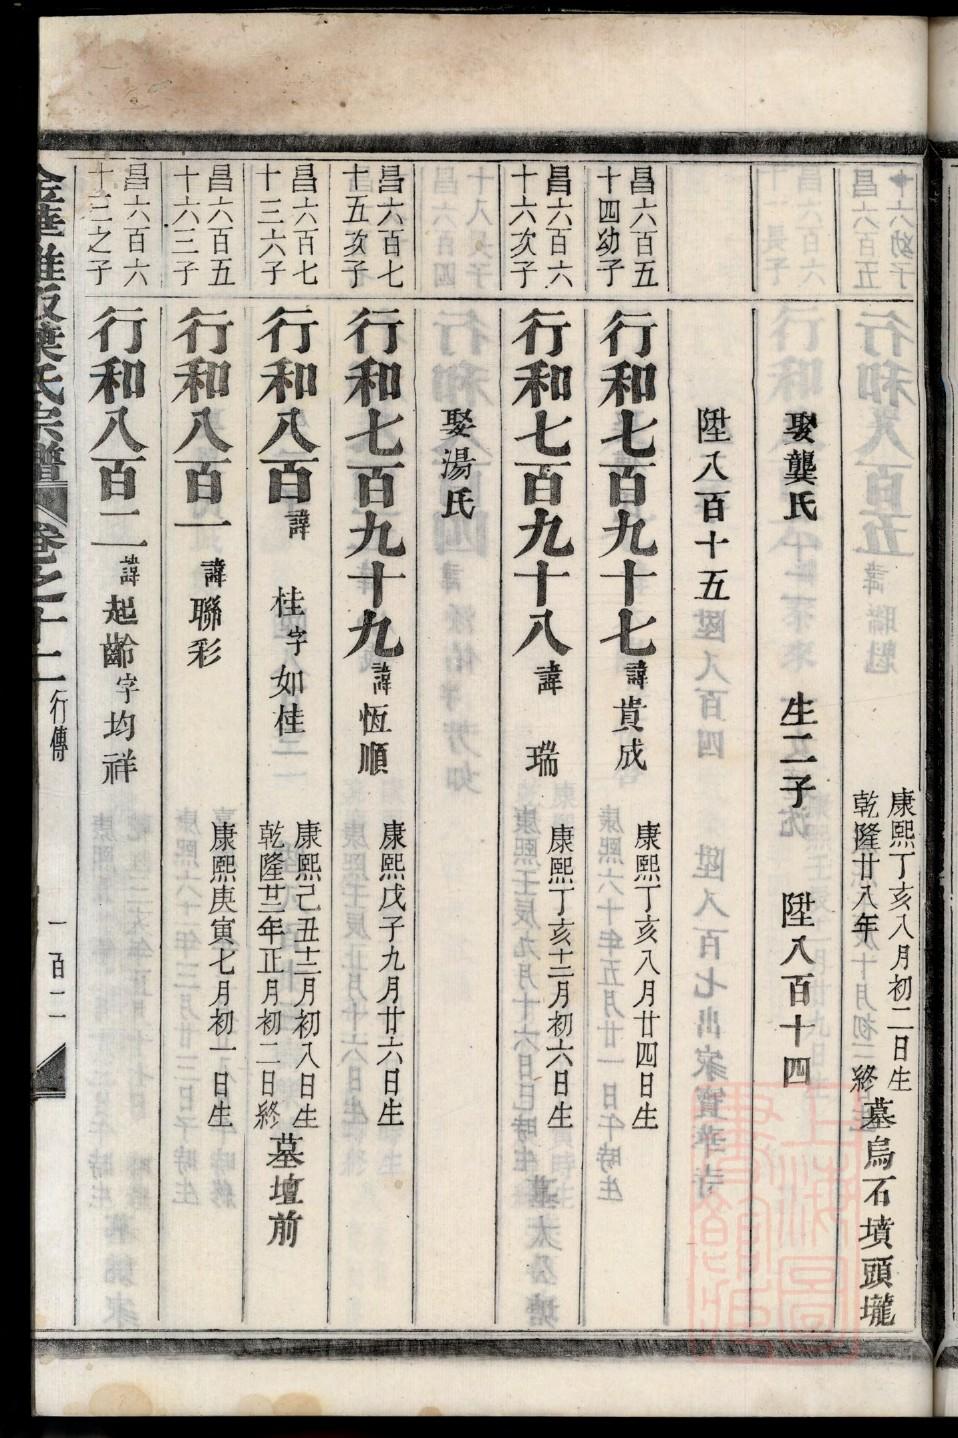 康熙丁亥八月初二日生
乾隆廿八年 終
墓烏石墳頭壠
娶龔氏 生二子 陞八百十四
陞八百十五
昌六百五
十四幼子
行和七百九十七 諱貴成
康熙丁亥八月廿四日生
昌六百六
十六次子
行和七百九十八 諱 瑞
康熙丁亥十二月初六日生
娶湯氏
昌六百七
十五次子
行和七百九十九 諱恆順
康熙戊子九月廿六日生
昌六百七
十三六子
行和八百 諱 桂字如桂
康熙己丑十二月初八日生
乾隆廿三年正月初二日終
墓壇前
昌六百五
十六三子
行和八百一 諱聯彩
康熙庚寅七月初一日生
昌六百六
十三之子
行和八百二 諱起齡字均祥
葉氏宗譜 卷之十二 行傳 一百二